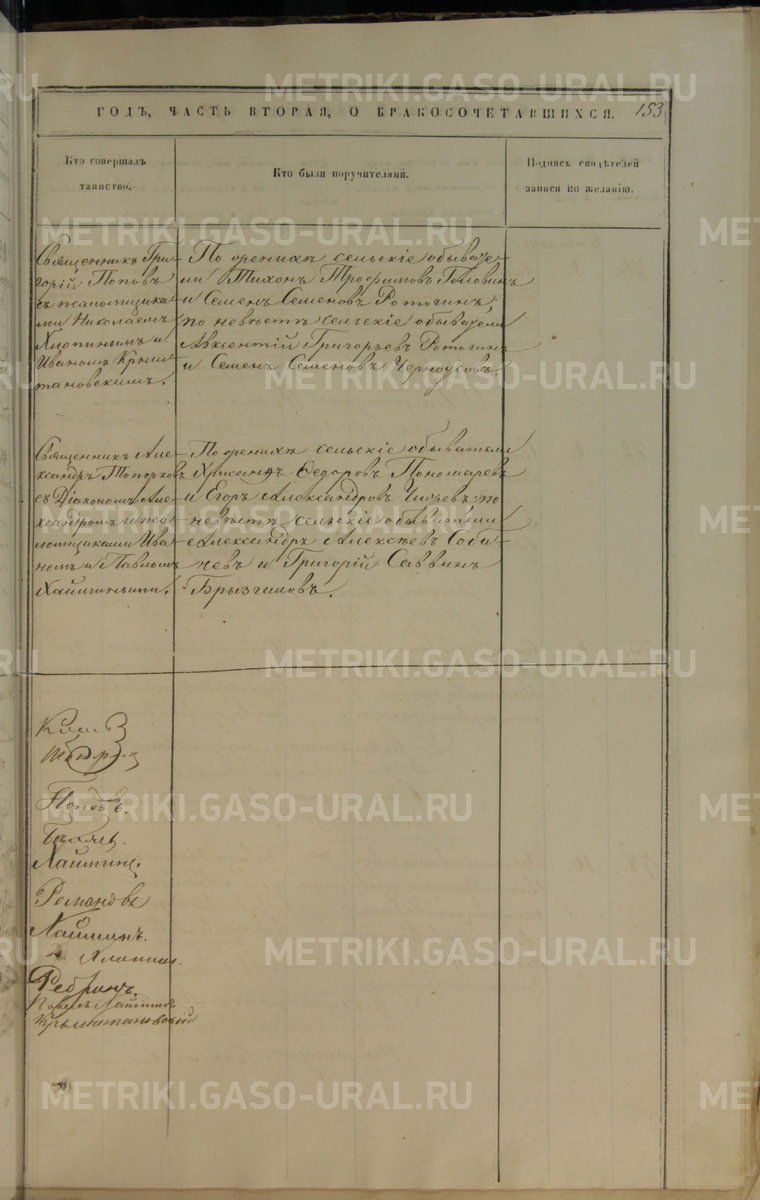 ГОДЪ, ЧАСТЬ ВТОРАЯ, О БРАКОСОЧЕТАВШИХСЯ. 153
Кто совершалъ
таинство.
Кто были поручителями.
Подпись свидѣтелей
записи по желанію.
Священникъ Гри-
горій Поповъ
съ псаломщика-
ми Николаемъ
Хлопинымъ и
Иваномъ Крыш-
тановскимъ.
По женихѣ сельскіе обывате-
ли Тихонъ Трофимовъ Головинъ
и Семенъ Семеновъ Ротогинъ,
по невѣстѣ сельскіе обыватели
Авксентій Григорьевъ Ротогинъ
и Семенъ Семеновъ Черноусовъ.
Священникъ Але-
ксандръ Топорковъ
съ Діакономъ Але-
ксандромъ и пса-
ломщиками Ива-
номъ и Павломъ
Хайминыыми.
По женихѣ сельскіе обыватели
Хрисанфъ Ѳедоровъ Пономаревъ
и Егоръ Александровъ по
невѣстѣ сельскіе обыватели
Александръ Алексѣевъ Соби-
невъ и Григорій Саввинъ
Брызгаловъ.
Поповъ.
Хайминъ.
Романовъ
Хайминъ.
Хлопинъ.
Ребринъ.
Павелъ Хайминъ
Крыштановскій
METRIKI.GASO-URAL.RU